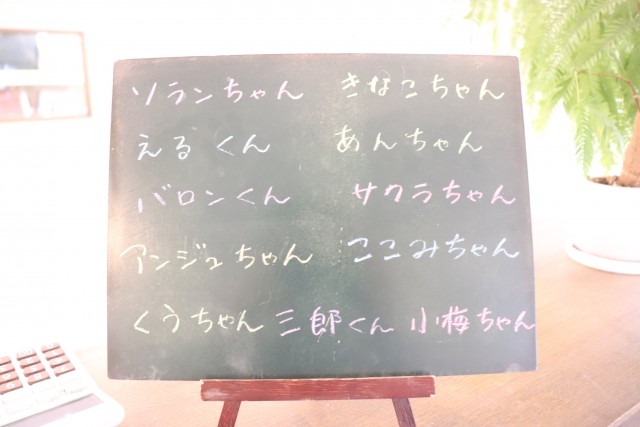 ソランちゃん きなこちゃん
えるくん あんちゃん
バロンくん サクラちゃん
アンジュちゃん ここみちゃん
くうちゃん 三郎くん 小梅ちゃん